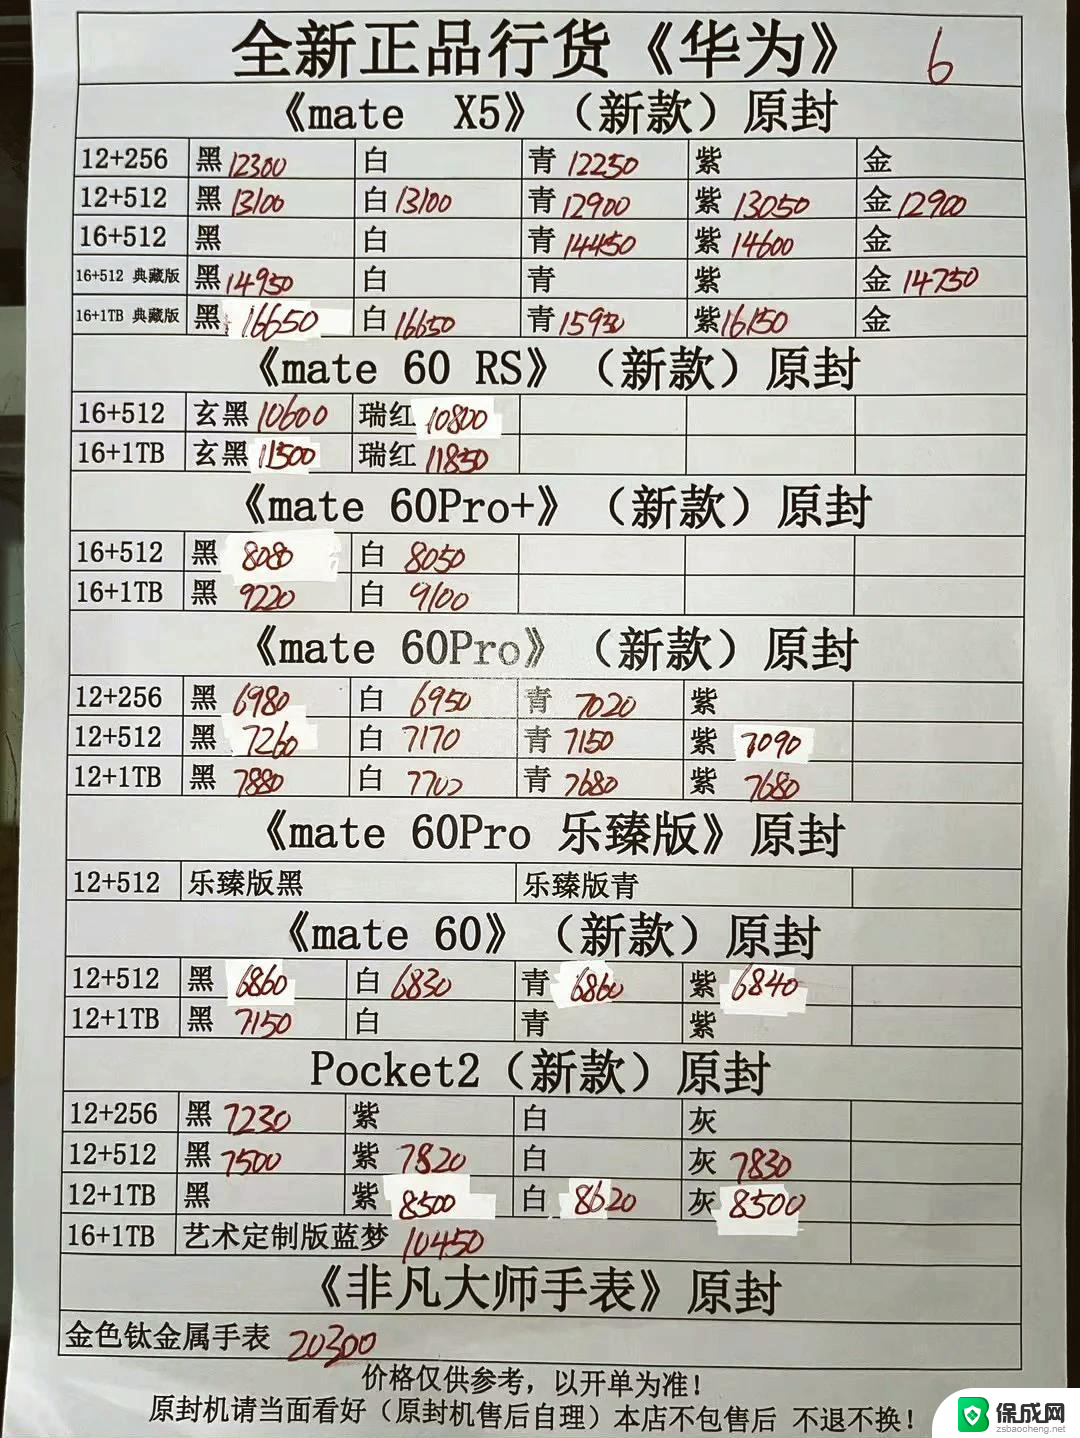 全新正品行货《华为》 6
《mate X5》（新款）原封
12+256 黑 12300 白 青 12250 紫 金
12+512 黑 13100 白 13100 青 12900 紫 13050 金 12900
16+512 黑 白 青 14450 紫 14600 金
16+512 典藏版 黑 14950 白 青 紫 金 14750
16+1TB 典藏版 黑 16650 白 16650 青 15950 紫 16150 金
《mate 60 RS》（新款）原封
16+512 玄黑 10600 瑞红 10800
16+1TB 玄黑 11500 瑞红 11850
《mate 60Pro+》（新款）原封
16+512 黑 8080 白 8050
16+1TB 黑 9220 白 9100
《mate 60Pro》（新款）原封
12+256 黑 6980 白 6950 青 7020 紫
12+512 黑 7260 白 7170 青 7150 紫 7090
12+1TB 黑 7880 白 7700 青 7680 紫 7680
《mate 60Pro 乐臻版》原封
12+512 乐臻版黑 乐臻版青
《mate 60》（新款）原封
12+512 黑 6860 白 6830 青 6860 紫 6840
12+1TB 黑 7150 白 青 紫
Pocket2（新款）原封
12+256 黑 7230 紫 白 灰
12+512 黑 7500 紫 7820 白 灰 7830
12+1TB 黑 紫 8500 白 8620 灰 8500
16+1TB 艺术定制版蓝梦 10450
《非凡大师手表》原封
金色钛金属手表 20300
价格仅供参考，以开单为准！
原封机请当面看好（原封机售后自理）本店不包售后 不退不换！
保成网
zsbaocheng.net